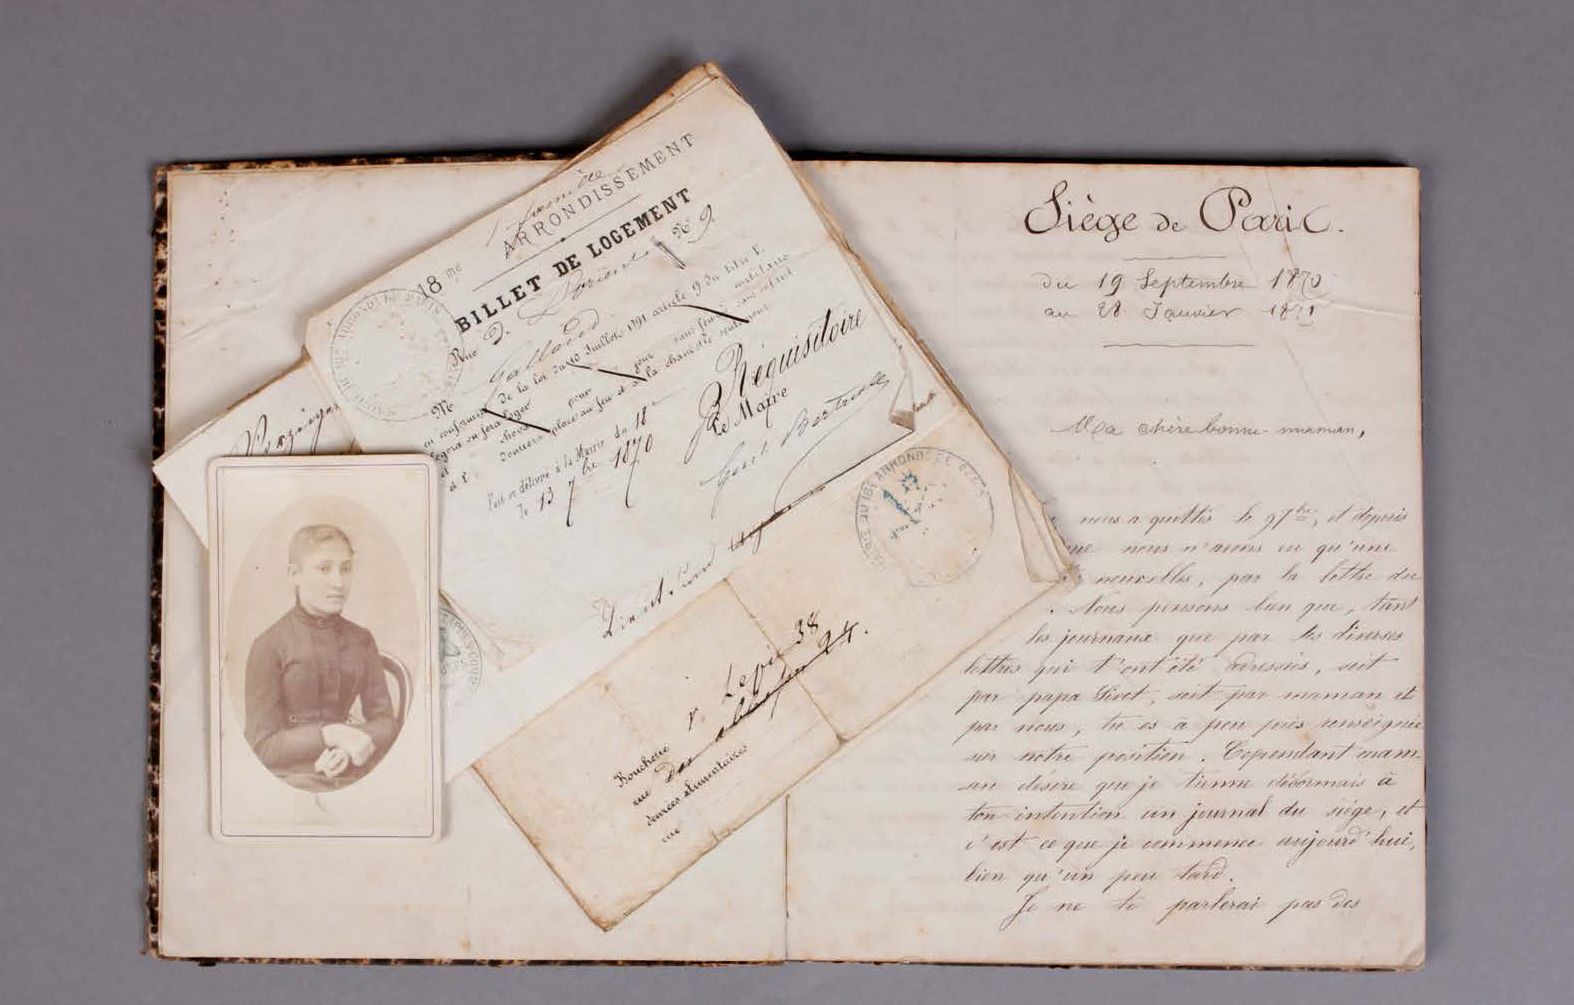 18me ARRONDISSEMENT
BILLET DE LOGEMENT
Rue D. No 9
M Gallard
en conformité de la loi du 10 Juillet 1791 article 9 du titre V,
logera ou fera loger pour sans militaire
et chevaux pour sans
donnera place au feu et à la chandelle seulement
Fait et délivré à la Mairie du 18
le 13 7bre 1870
Réquisitoire
Le Maire
Boucherie r. Lepic 38
rue 24.
denrées alimentaires
rue
Siège de Paris.
du 19 Septembre 1870
au 28 Janvier 1871
Ma chère bonne-maman,
nous a quittés le 9 7bre, et depuis
nous n'avons eu qu'une
nouvelles, par la lettre du
. Nous pensons bien que, tant
les journaux que par les diverses
lettres qui t'ont été adressées, soit
par papa Givet, soit par maman et
par nous, tu es à peu près renseignée
sur notre position. Cependant mam-
an désire que je tienne désormais à
ton intention un journal du siége, et
c'est ce que je commence aujourd'hui,
bien qu'un peu tard.
Je ne te parlerai pas des